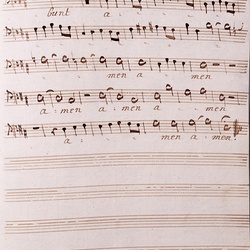 bunt a
men a men
a: men a: men a men
a men: a: men.